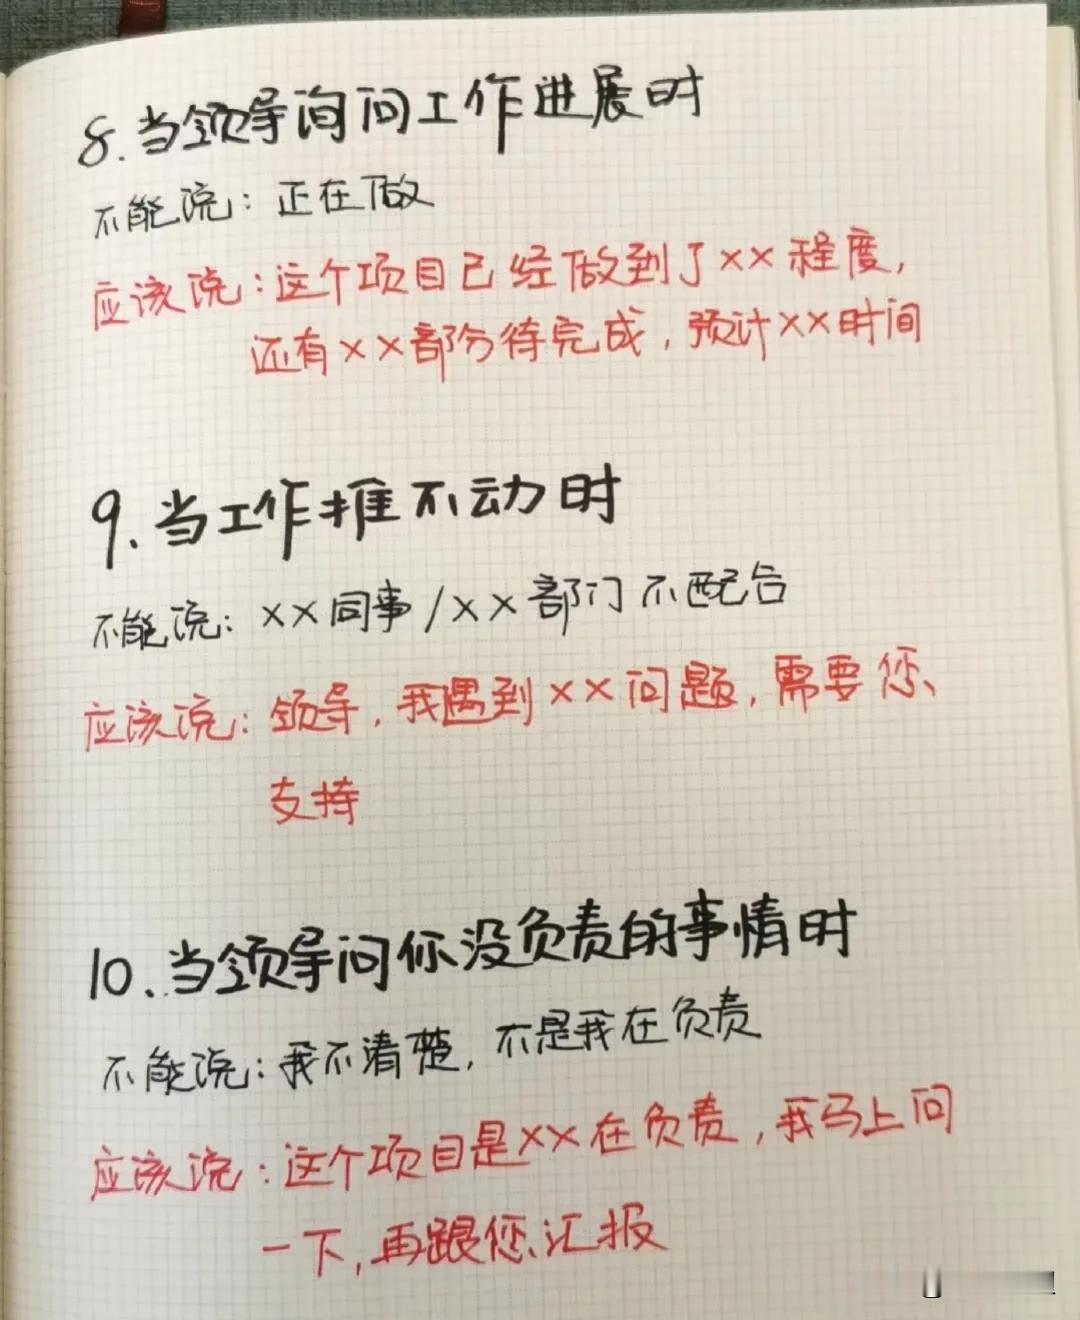 8.当领导询问工作进展时
不能说：正在做
应该说：这个项目已经做到了××程度，
还有××部分待完成，预计××时间
9.当工作推不动时
不能说：××同事/××部门不配合
应该说：领导，我遇到××问题，需要您
支持
10.当领导问你没负责的事情时
不能说：我不清楚，不是我在负责
应该说：这个项目是××在负责，我马上问
一下，再跟您汇报